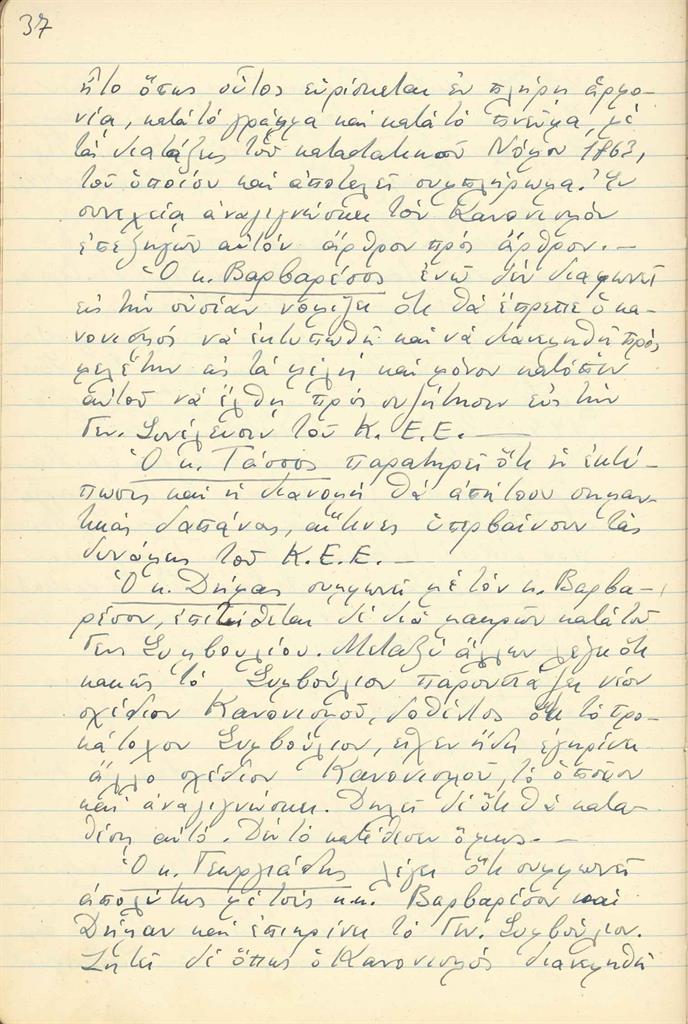 37
ἦτο ὅπως οὗτος εὑρίσκεται ἐν πλήρη ἁρμο-
νία, κατὰ τὸ γράμμα καὶ κατὰ τὸ πνεῦμα, μὲ
τὰς διατάξεις τοῦ καταστατικοῦ Νόμου 1863,
τοῦ ὁποίου καὶ ἀποτελεῖ συμπλήρωμα. Ἐν
συνεχείᾳ ἀναγιγνώσκει τὸν Κανονισμόν
ἐπεξηγῶν αὐτὸν ἄρθρον πρὸς ἄρθρον.—
Ὁ κ. Βαρβαρέσος ἐνῶ δὲν διαφωνεῖ
εἰς τὴν οὐσίαν νομίζει ὅτι θὰ ἔπρεπε ὁ κα-
νονισμός νὰ ἐκτυπωθῆ καὶ νὰ διανεμηθῆ πρὸς
μελέτην εἰς τὰ μέλη καὶ μόνον κατόπιν
αὐτοῦ νὰ ἔλθη πρὸς συζήτησιν εἰς τὴν
Γεν. Συνέλευσιν τοῦ Κ.Ε.Ε.—
Ὁ κ. Τάσσος παρατηρεῖ ὅτι ἡ ἐκτύ-
πωσις καὶ ἡ διανομὴ θὰ ἀπῄτουν σημαν-
τικὰς δαπάνας, αἵτινες ὑπερβαίνουν τὰς
δυνάμεις τοῦ Κ.Ε.Ε.—
Ὁ κ. Δήμας συμφωνεῖ μὲ τὸν κ. Βαρβα-
ρέσον, ἐπιτίθεται δὲ διὰ μακρῶν κατὰ τοῦ
Γεν. Συμβουλίου. Μεταξὺ ἄλλων λέγει ὅτι
κακῶς τὸ Συμβούλιον παρουσιάζει νέον
σχέδιον Κανονισμοῦ, δοθέντος ὅτι τὸ προ-
κάτοχον Συμβούλιον, εἶχεν ἤδη ἐγκρίνει
ἄλλο σχέδιον Κανονισμοῦ, τὸ ὁποῖον
καὶ ἀναγιγνώσκει. Δηλοῖ δὲ ὅτι θὰ κατα-
θέση αὐτό. Δὲν τὸ κατέθεσεν ὅμως.—
Ὁ κ. Γεωργιάδης λέγει ὅτι συμφωνεῖ
ἀπολύτως μὲ τοὺς κ.κ. Βαρβαρέσον καὶ
Δήμαν καὶ ἐπικρίνει τὸ Γεν. Συμβούλιον.
Ζητεῖ δὲ ὅπως ὁ Κανονισμός διανεμηθῆ